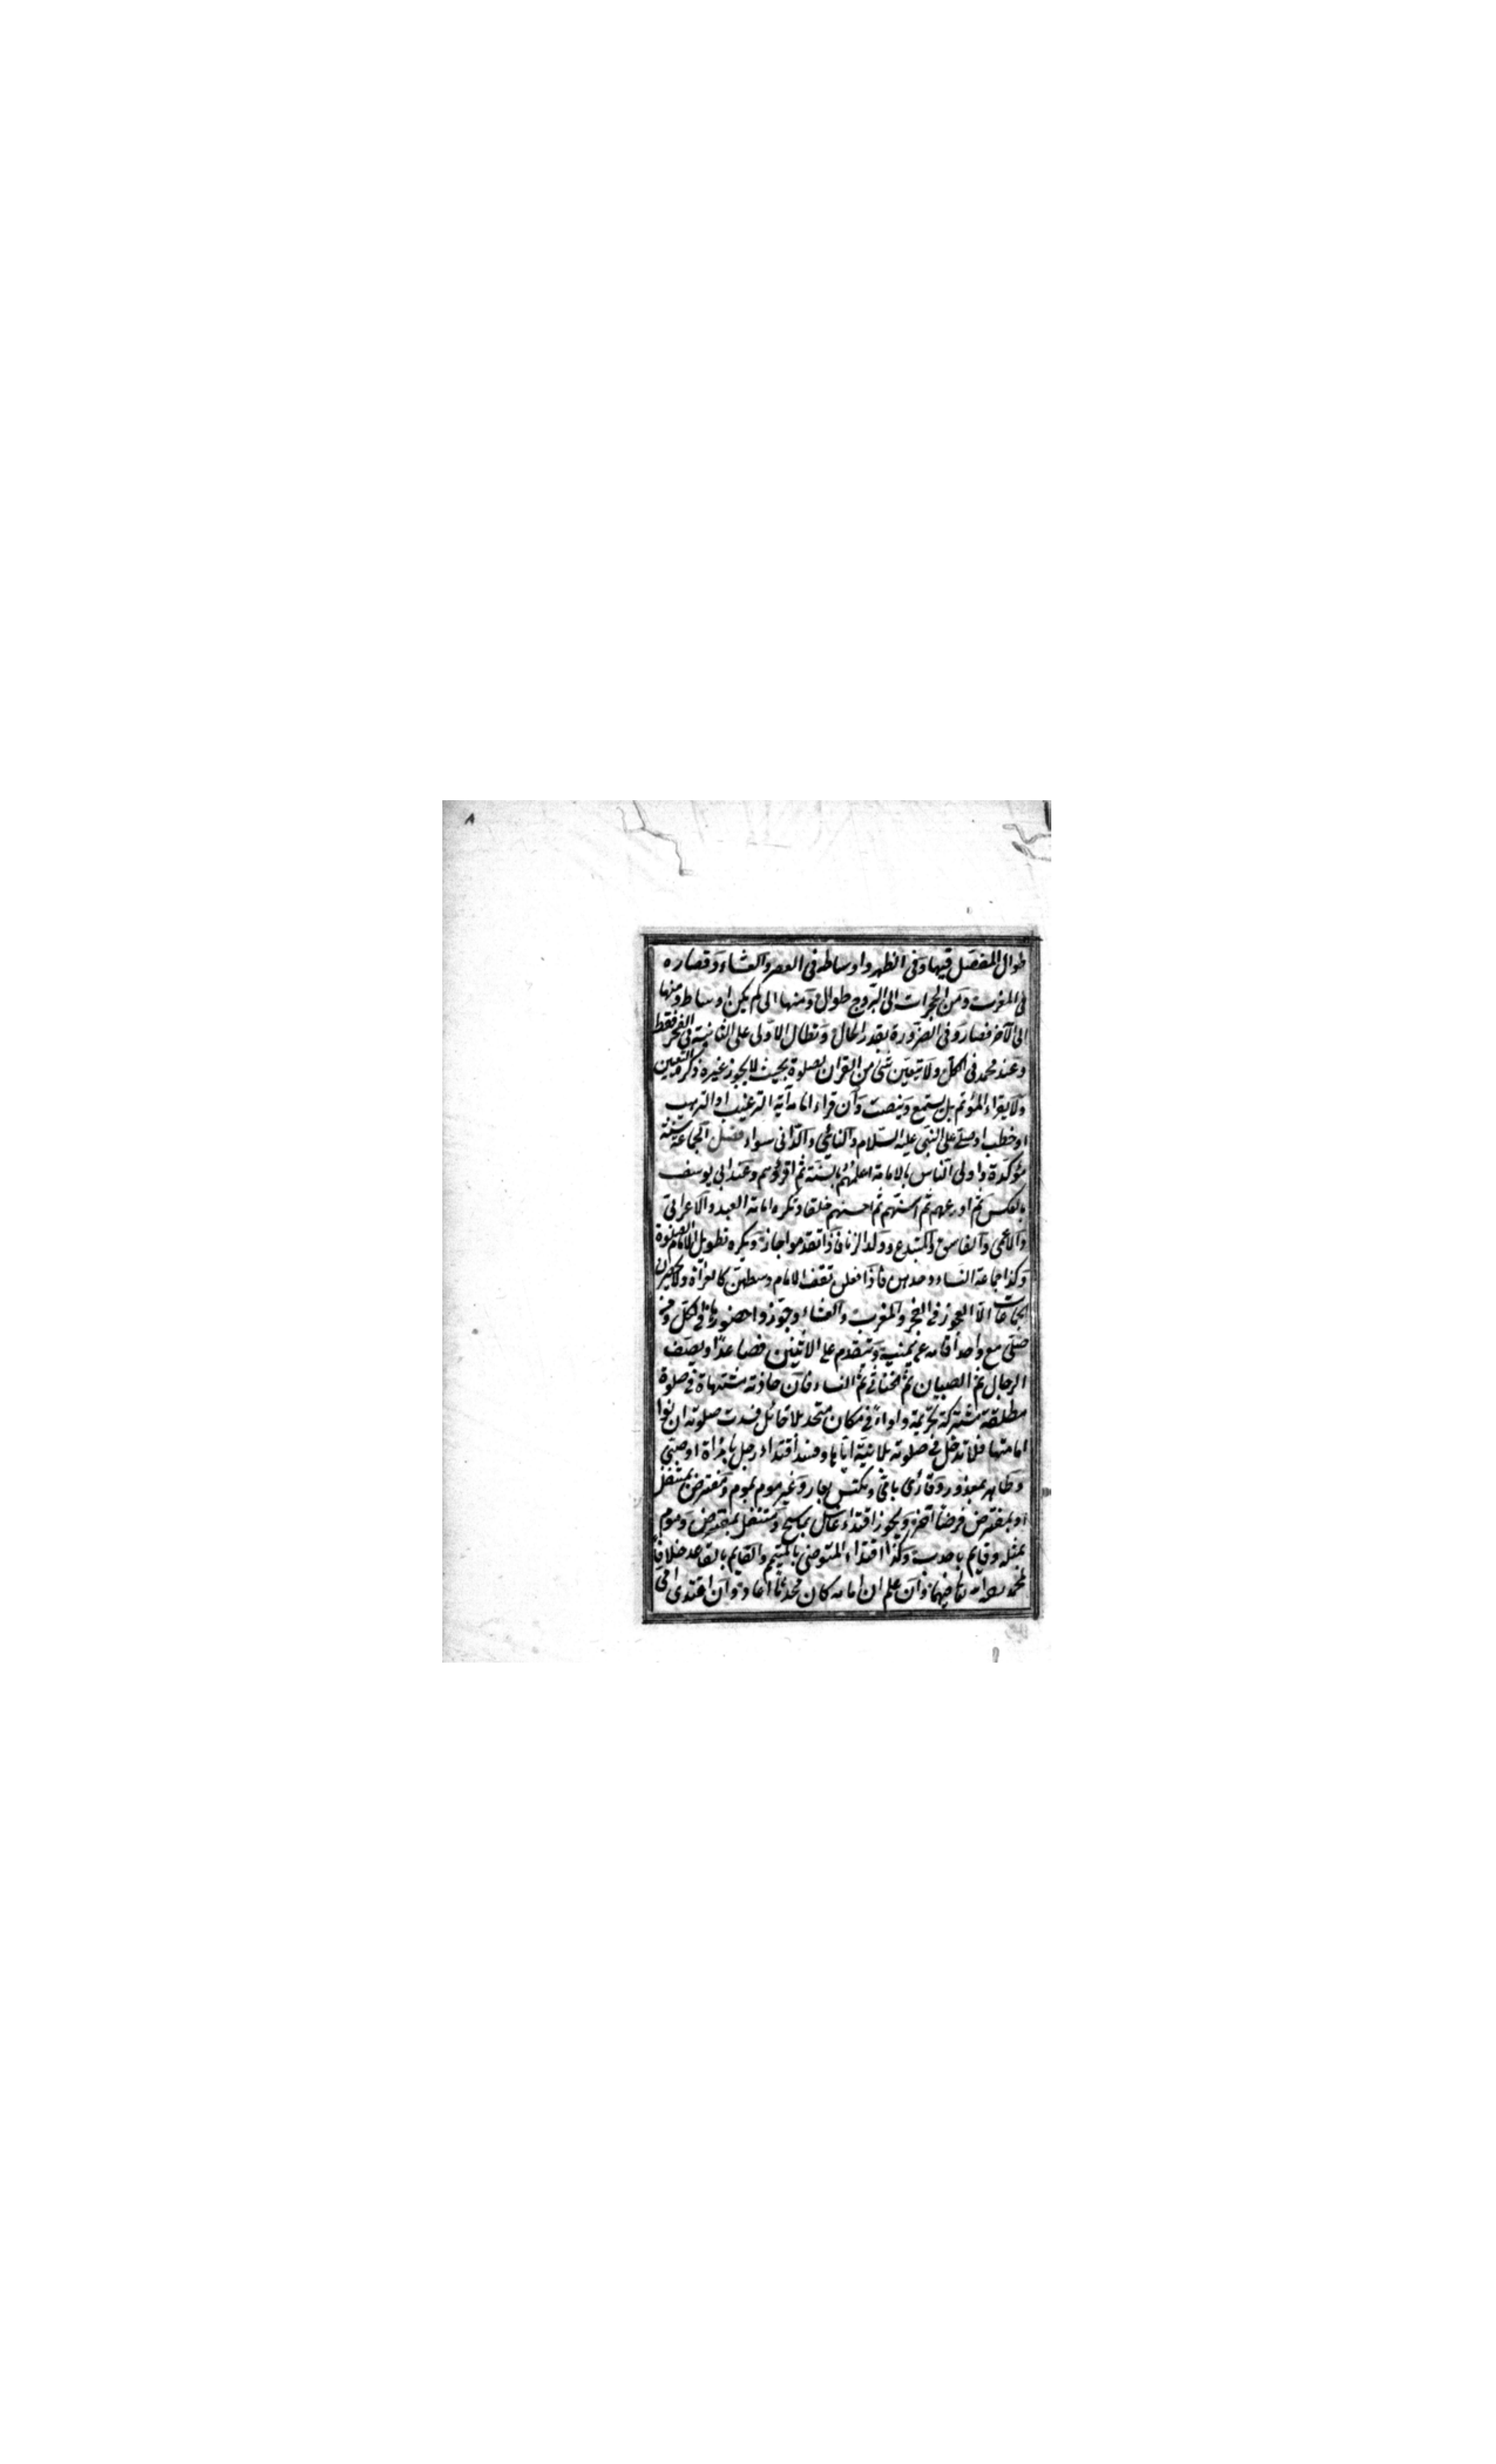 ٨
طوال المفصل فيها وفى الظهر واوساطه فى العصر والعشاء وقصاره
فى المغرب ومن الحجرات الى البروج طوال ومنها الى لم يكن اوساط ومنها
الى الآخر قصار وفى الضرورة بقدر الحال وتطال الاولى على الثانية فى الفجر فقط
وعند محمد فى الكل ولا يتعين شئ من القرآن لصلوة بحيث لا يجوز غيره وكره التعيين
ولا يقراء المؤتم بل يستمع وينصت وان قراء امامه آية الترغيب او الترهيب
او خطب او صلى على النبى عليه السلام والنائى والدانى سواء فصل الجماعة سنة
مؤكدة واولى الناس بالامامة اعلمهم بالسنة ثم اقرؤهم وعند ابى يوسف
بالعكس ثم اورعهم ثم اسنهم ثم احسنهم خلقا وتكره امامة العبد والاعرابى
والاعمى والفاسق والمبتدع وولد الزنا فاذا تقدموا جاز ويكره تطويل الامام الصلوة
وكذا جماعة النساء وحدهن فاذا فعلن تقف الامام وسطهن كالعراة ولا يحضرن
الجماعات الا العجوز فى الفجر والمغرب والعشاء وجوزوا حضورها فى الكل ومن
صلى مع واحد أقامه عن يمينه ويتقدم على الاثنين فصاعدا ويصف
الرجال ثم الصبيان ثم الخناثى ثم النساء فان حاذته مشتهاة فى صلوة
مطلقة مشتركة تحريمة واداء فى مكان متحد بلا حائل فسدت صلوته ان نوى
امامتها فلا تدخل فى صلوته بلا نية اياها وفسد أقتداء رجل بامرأة او صبى
وطاهر بمعذور وقارئ بامى ومكتس بعار وغير موم بموم ومفترض بمتنفل
او بمفترض فرضا آخر ويجوز اقتداء غاسل بماسح ومتنفل بمفترض وموم
بمثله وقايم باحدب وكذا اقتداء المتوضى بالمتيمم والقايم بالقاعد خلافا
لمحمد رحمه الله تعالى فيهما وان علم ان امامه كان محدثا اعاد وان اقتدى امى